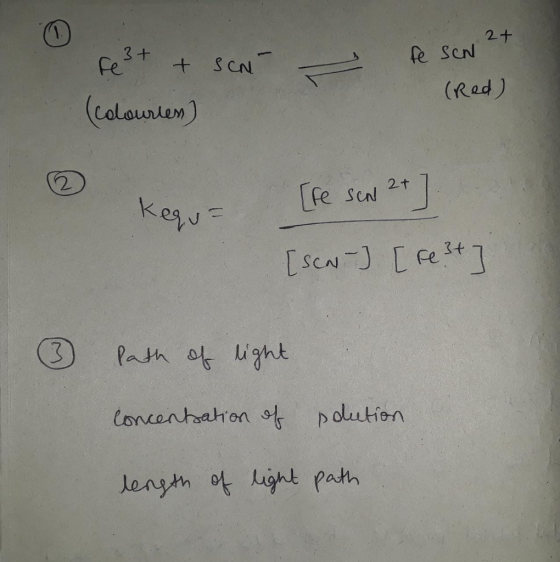 ① Fe³⁺ + SCN⁻ ⇌ Fe SCN ²⁺
(Colourless) (Red)
② Kequ = [Fe SCN ²⁺] / [SCN⁻] [Fe³⁺]
③ Path of light
Concentration of solution
length of light path